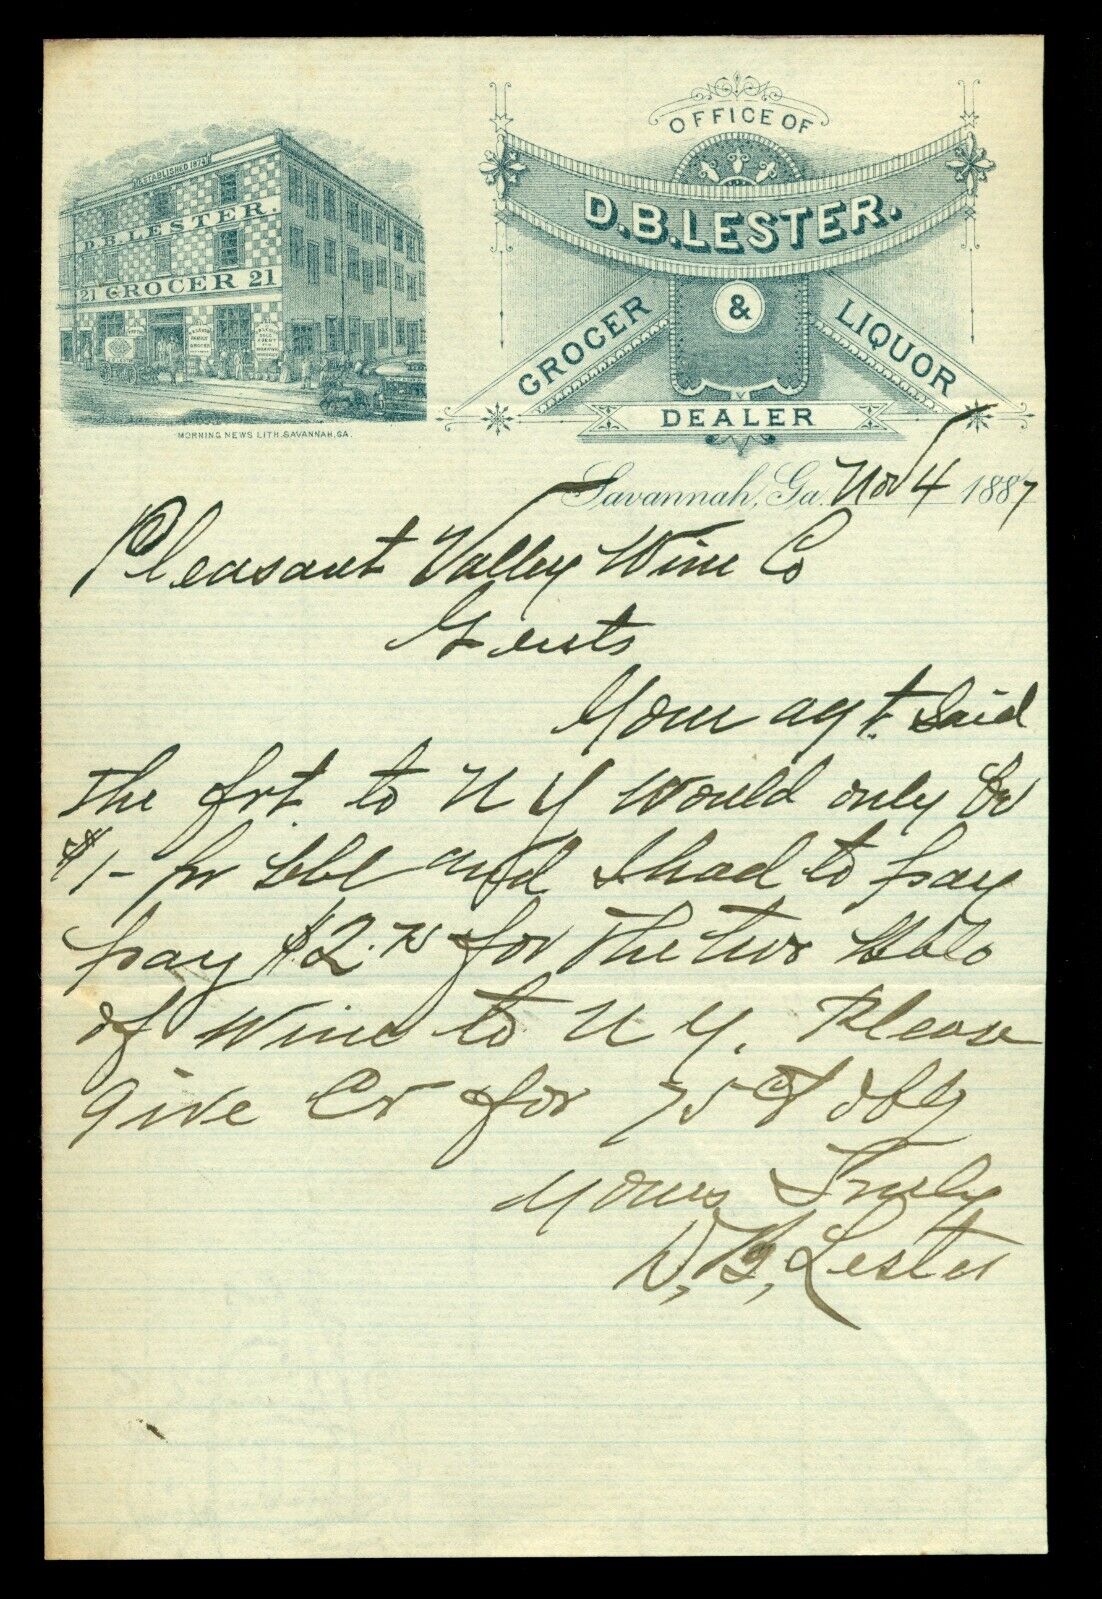 ESTABLISHED 1874
D.B. LESTER.
21 GROCER 21
MORNING NEWS LITH. SAVANNAH, GA.
OFFICE OF
D.B. LESTER.
GROCER & LIQUOR
DEALER
Savannah, Ga. Nov 4 1887
Pleasant Valley Wine Co
Gents
Your agt. Said
the frt. to N Y would only be
$1- pr bbl and I had to pay
pay $2.75 for the two Bbls
of Wine to N Y. Please
give Cr for 75 ct & obg
Yours Truly
D. B, Lester